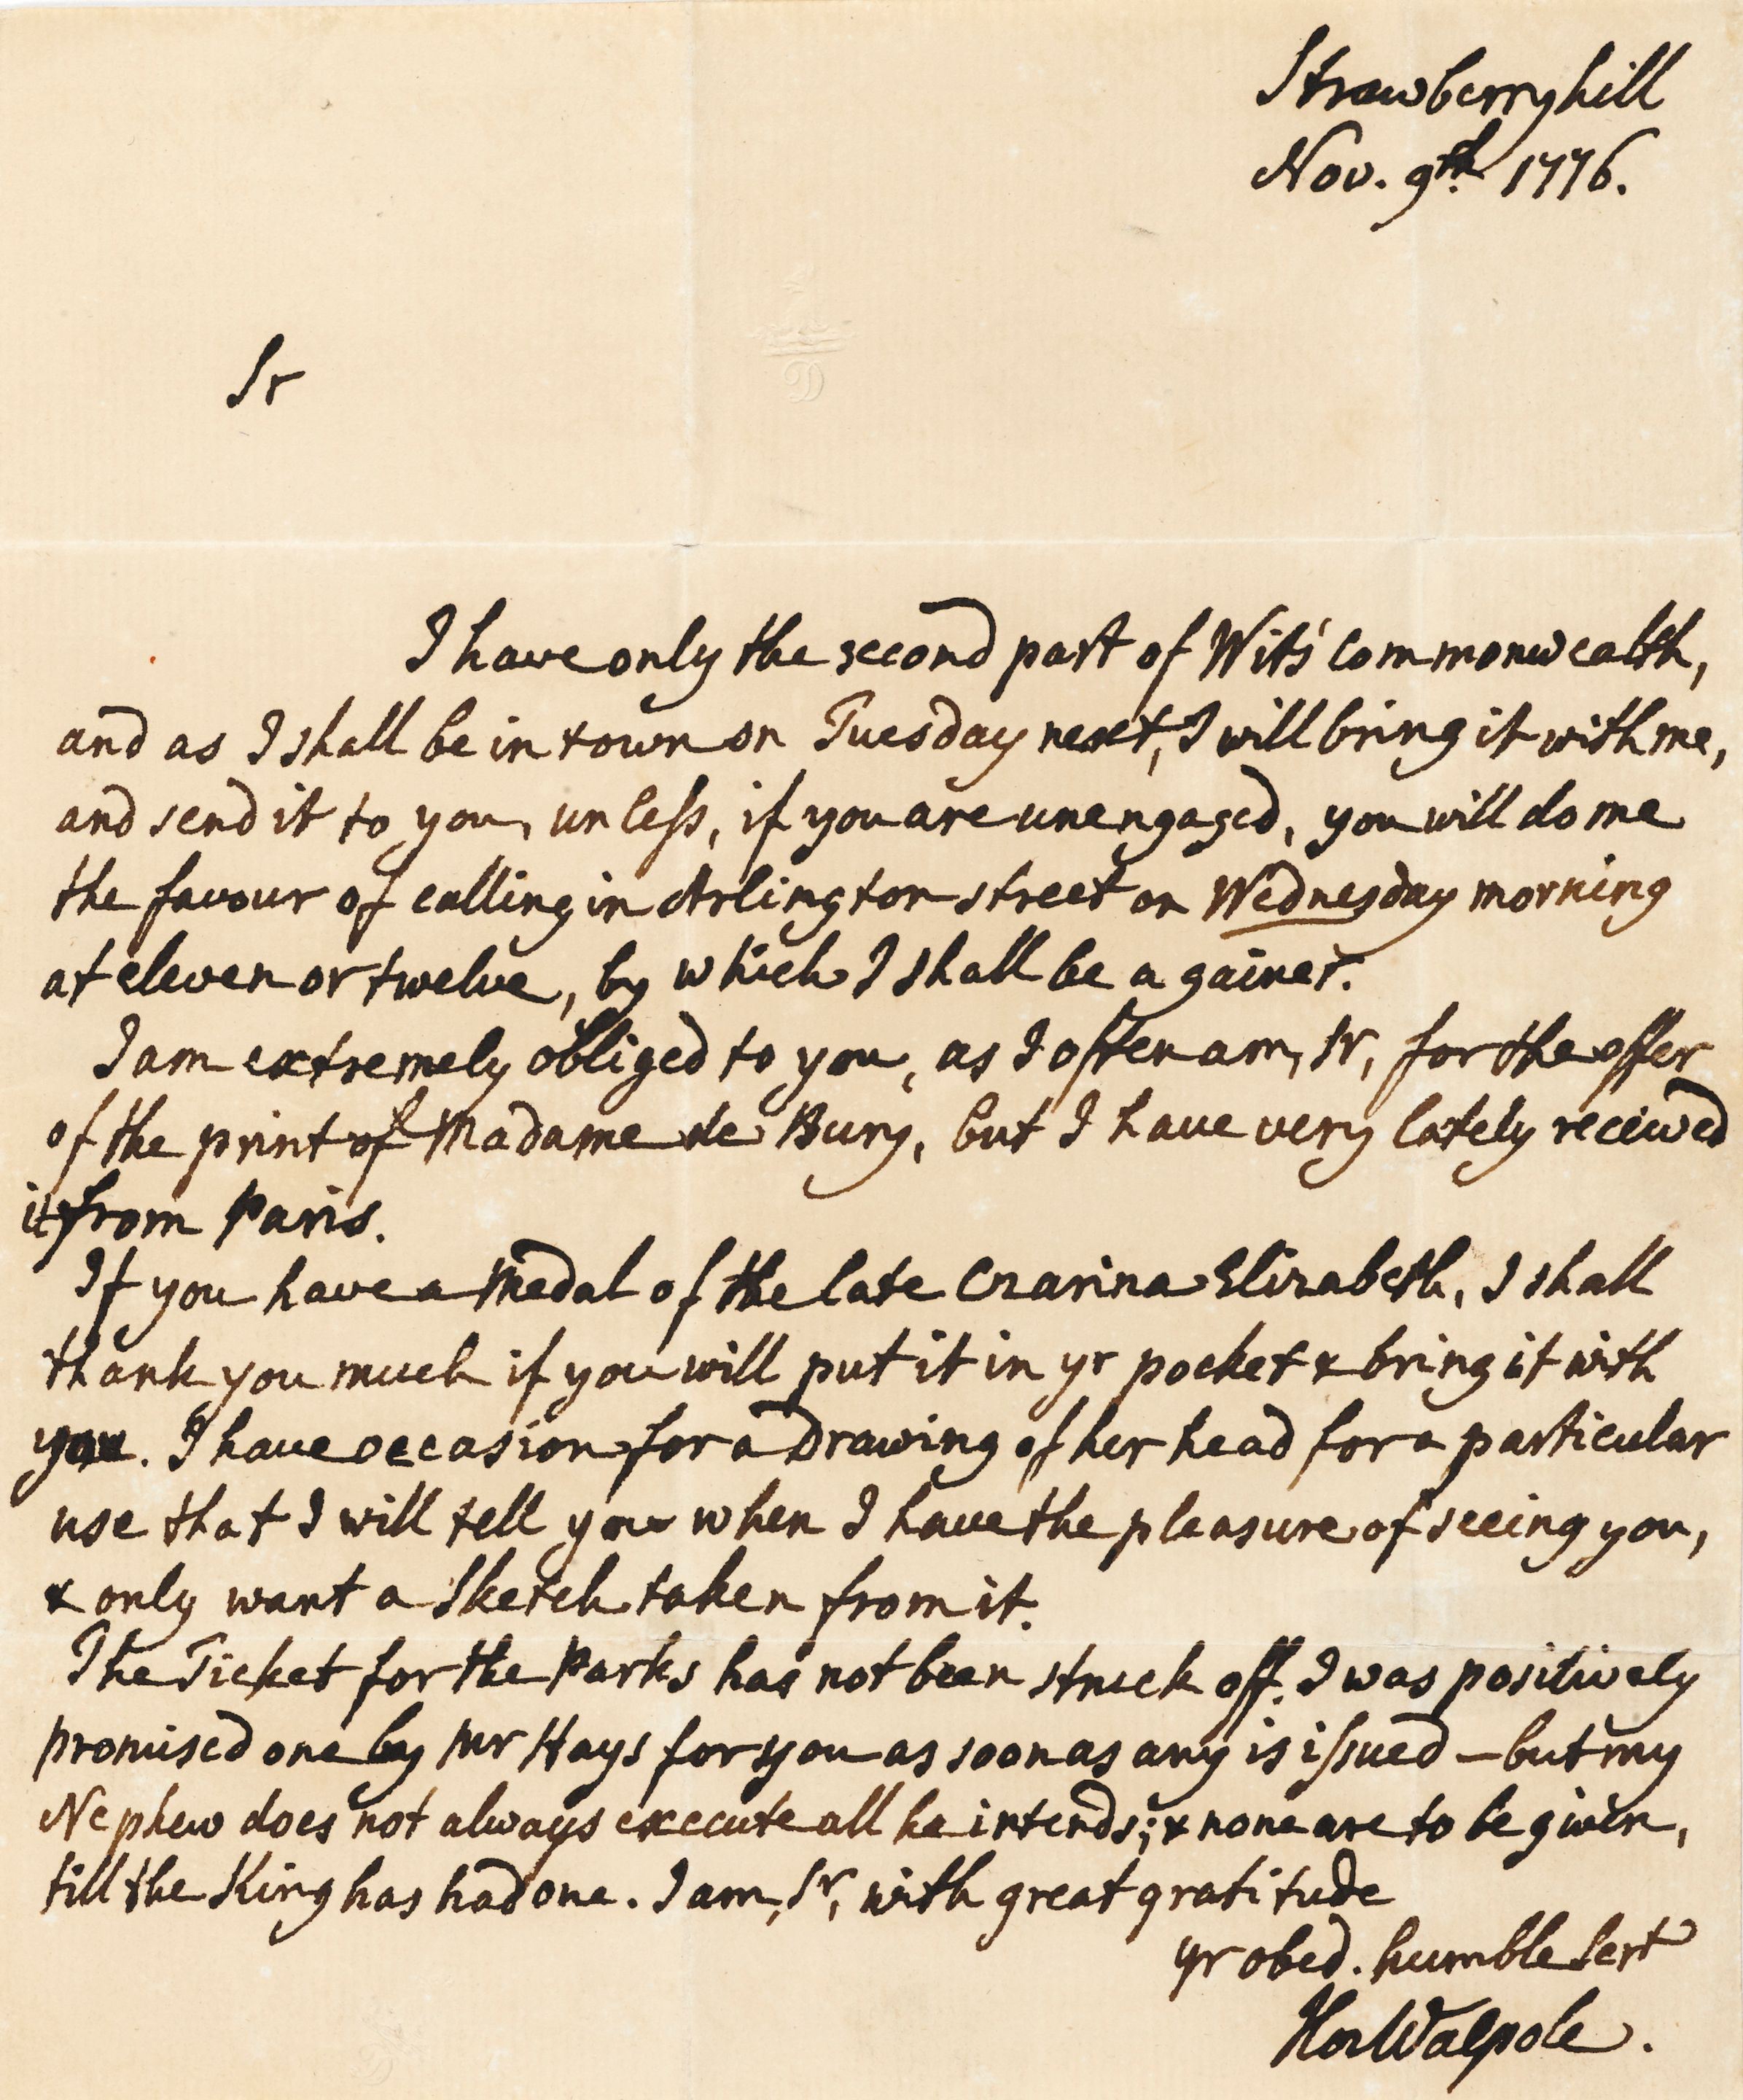 Strawberryhill
Nov. 9th. 1776.
Sr
I have only the second part of Wits' Commonwealth,
and as I shall be in town on Tuesday next, I will bring it with me,
and send it to you, unleſs, if you are unengaged, you will do me
the favour of calling in Arlington street on Wednesday morning
at eleven or twelve, by which I shall be a gainer.
I am extremely obliged to you, as I often am, Sr, for the offer
of the print of Madame de Bury, but I have very lately received
it from Paris.
If you have a Medal of the late Czarina Elizabeth, I shall
thank you much if you will put it in yr pocket & bring it with
you. I have occasion for a Drawing of her head for a particular
use that I will tell you when I have the pleasure of seeing you,
& only want a Sketch taken from it.
The Ticket for the Parks has not been struck off. I was positively
promised one by Mr Hays for you as soon as any is iſsued – but my
Nephew does not always execute all he intends; & none are to be given,
till the King has had one. I am, Sr, with great gratitude
yr obed. humble Sert
Hor Walpole.